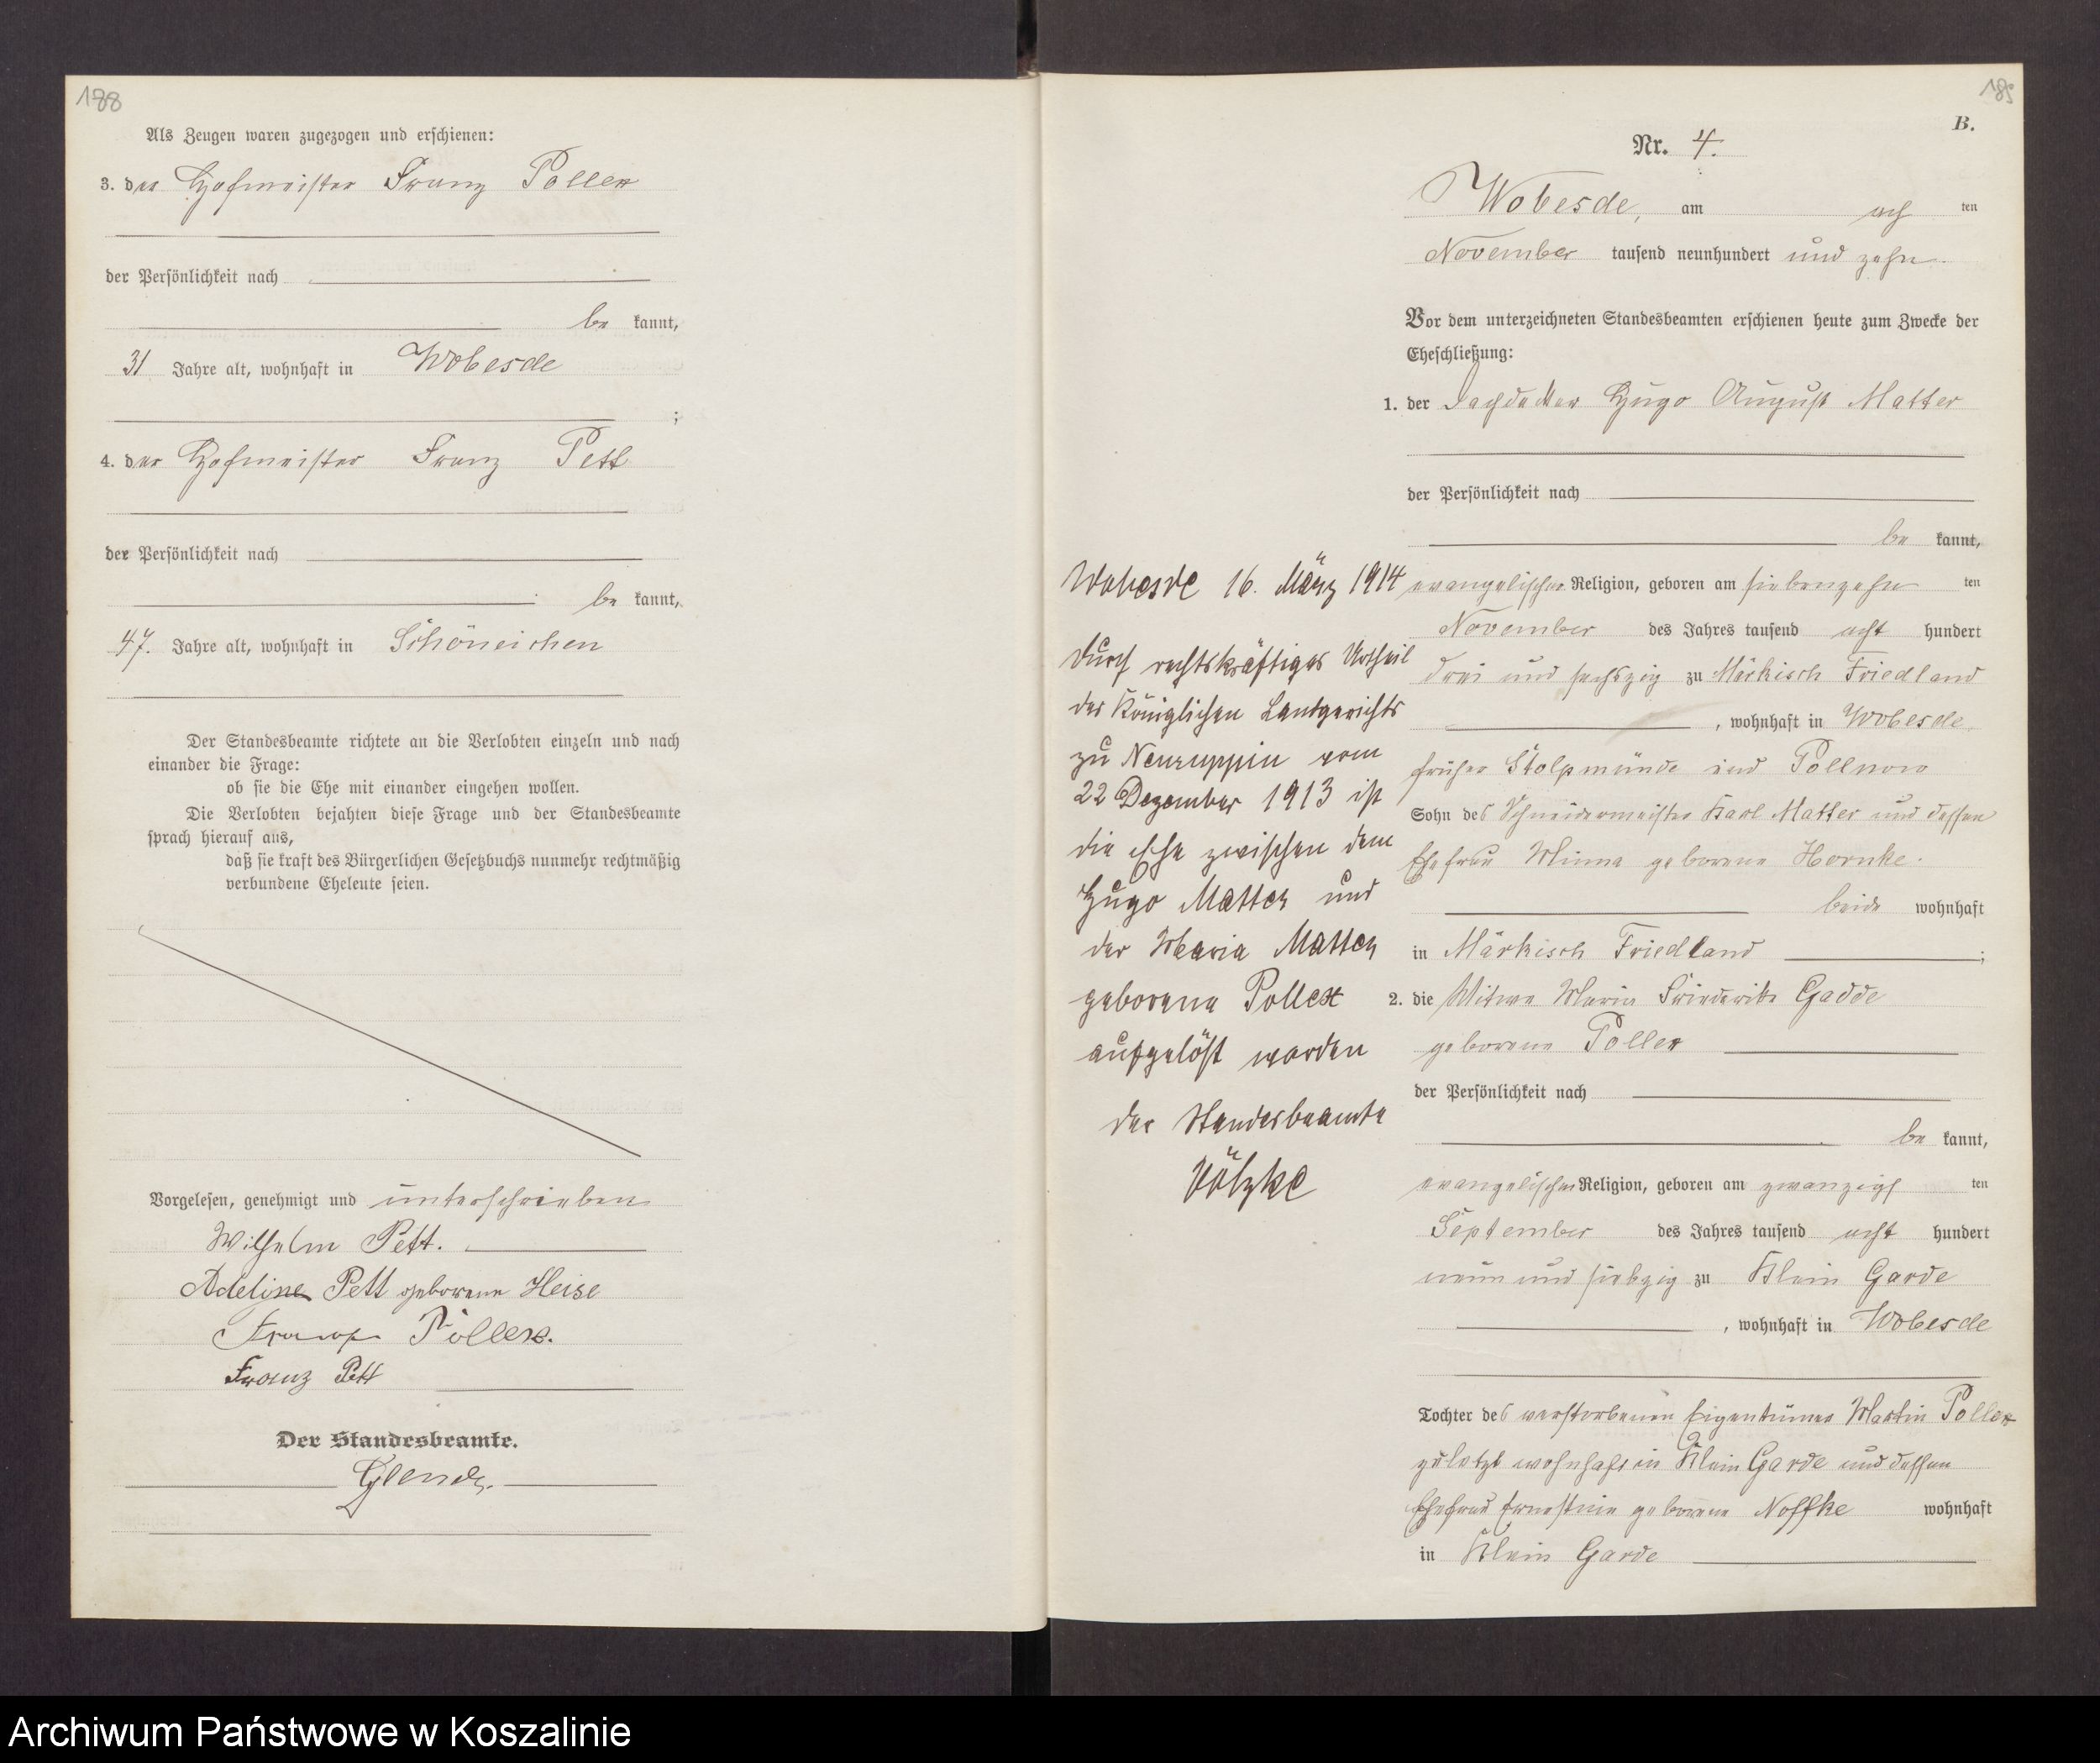 188
Als Zeugen waren zugezogen und erschienen:
3. der Hofmeister Franz Pollex
der Persönlichkeit nach
be kannt,
31 Jahre alt, wohnhaft in Wobesde
;
4. der Hofmeister Franz Pett
der Persönlichkeit nach
be kannt,
47. Jahre alt, wohnhaft in Schöneichen
Der Standesbeamte richtete an die Verlobten einzeln und nach
einander die Frage:
ob sie die Ehe mit einander eingehen wollen.
Die Verlobten bejahten diese Frage und der Standesbeamte
sprach hierauf aus,
daß sie kraft des Bürgerlichen Gesetzbuchs nunmehr rechtmäßig
verbundene Eheleute seien.
Vorgelesen, genehmigt und unterschrieben
Wilhelm Pett.
Adeline Pett geborene Heise
Franz Pollex.
Franz Pett
Der Standesbeamte.
185
B.
Nr. 4.
Wobesde, am ach ten
November tausend neunhundert und zehn
Vor dem unterzeichneten Standesbeamten erschienen heute zum Zwecke der
Eheschließung:
1. der Dachdecker Hugo August Matter
der Persönlichkeit nach
be kannt,
evangelischer Religion, geboren am siebenzehn ten
November des Jahres tausend acht hundert
drei und sechszig zu Märkisch Friedland
, wohnhaft in Wobesde
früher Stolpmünde und Pollnow
Sohn des Schneidermeister Karl Matter und dessen
Ehefrau Minna geborene Hornke.
beide wohnhaft
in Märkisch Friedland ;
2. die Witwe Maria Friederike Gadde
geborene Pollex
der Persönlichkeit nach
be kannt,
evangelischer Religion, geboren am zwanzigs ten
September des Jahres tausend acht hundert
neun und siebzig zu Klein Garde
, wohnhaft in Wobesde
Tochter des verstorbenen Eigentümer Martin Pollex
zuletzt wohnhaft in Klein Garde und dessen
Ehefrau Ernestine geborene Noffke wohnhaft
in Klein Garde
Wobesde 16. März 1914
Durch rechtskräftiges Urtheil
des Königlichen Landgerichts
zu Neuruppin vom
22 Dezember 1913 ist
die Ehe zwischen dem
Hugo Matter und
der Maria Matter
geborene Pollex
aufgelöst worden
Der Standesbeamte
Völzke
Archiwum Państwowe w Koszalinie